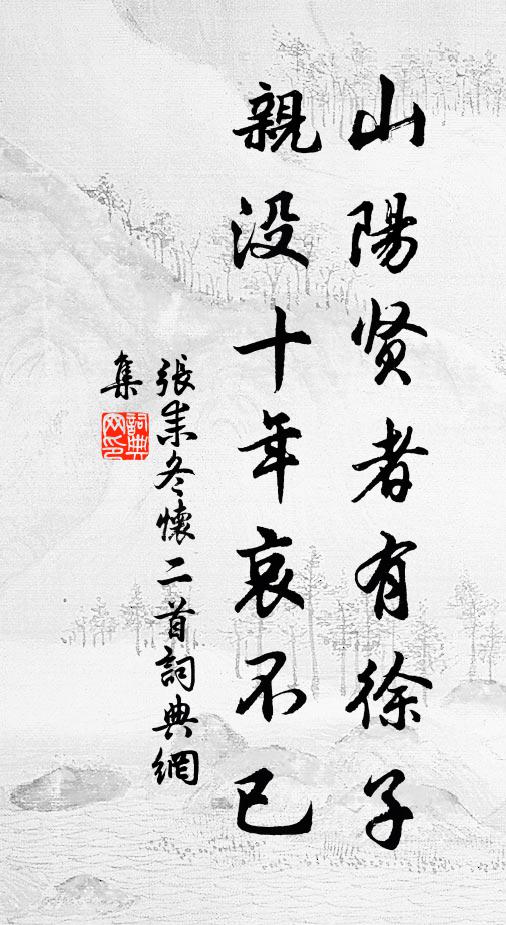 山陽贤者有徐子
親没十年哀不已
張耒冬懷二首詞典網
集
詞典
网印